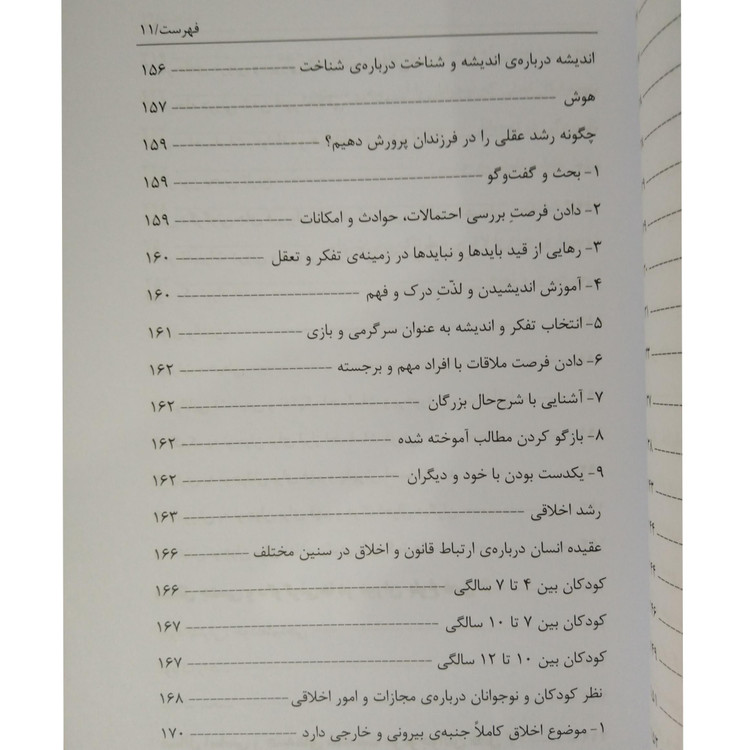 فهرست/۱۱
اندیشه درباره‌ی اندیشه و شناخت درباره‌ی شناخت ---------- ۱۵۶
هوش ---------- ۱۵۷
چگونه رشد عقلی را در فرزندان پرورش دهیم؟ ---------- ۱۵۹
۱- بحث و گفت‌وگو ---------- ۱۵۹
۲- دادن فرصتِ بررسی احتمالات، حوادث و امکانات ---------- ۱۵۹
۳- رهایی از قید بایدها و نبایدها در زمینه‌ی تفکر و تعقل ---------- ۱۶۰
۴- آموزش اندیشیدن و لذّتِ درک و فهم ---------- ۱۶۰
۵- انتخاب تفکر و اندیشه به عنوان سرگرمی و بازی ---------- ۱۶۱
۶- دادن فرصت ملاقات با افراد مهم و برجسته ---------- ۱۶۲
۷- آشنایی با شرح‌حال بزرگان ---------- ۱۶۲
۸- بازگو کردن مطالب آموخته شده ---------- ۱۶۲
۹- یکدست بودن با خود و دیگران ---------- ۱۶۲
رشد اخلاقی ---------- ۱۶۳
عقیده انسان درباره‌ی ارتباط قانون و اخلاق در سنین مختلف ---------- ۱۶۶
کودکان بین ۴ تا ۷ سالگی ---------- ۱۶۶
کودکان بین ۷ تا ۱۰ سالگی ---------- ۱۶۷
کودکان بین ۱۰ تا ۱۲ سالگی ---------- ۱۶۷
نظر کودکان و نوجوانان درباره‌ی مجازات و امور اخلاقی ---------- ۱۶۸
۱- موضوع اخلاق کاملاً جنبه‌ی بیرونی و خارجی دارد ---------- ۱۷۰